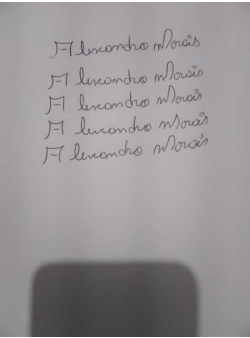 Alexandro Morais
Alexandro Morais
Alexandro Morais
Alexandro Morais
Alexandro Morais